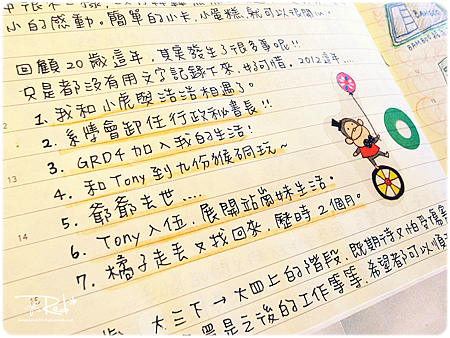 小的感動。簡單的小卡,小蛋糕,就可以很開心。
回顧20歲這年,其實發生了很多事呢!!
只是都沒有用文字記錄下來,好可惜。2012這年....
1. 我和小虎與浩浩相遇了。
2. 系學會卸任行政秘書長!!
3. GRD4加入我的生活!
4. 和Tony到九份猴硐玩~
5. 爺爺去世....
6. Tony入伍,展開站崗妹生活。
7. 橘子走丟又找回來,歷時2個月。
大三下→大四上的階段,既期待又怕受傷害
是之後的工作等等,希望都可以順
BAMBOO
13
14
15